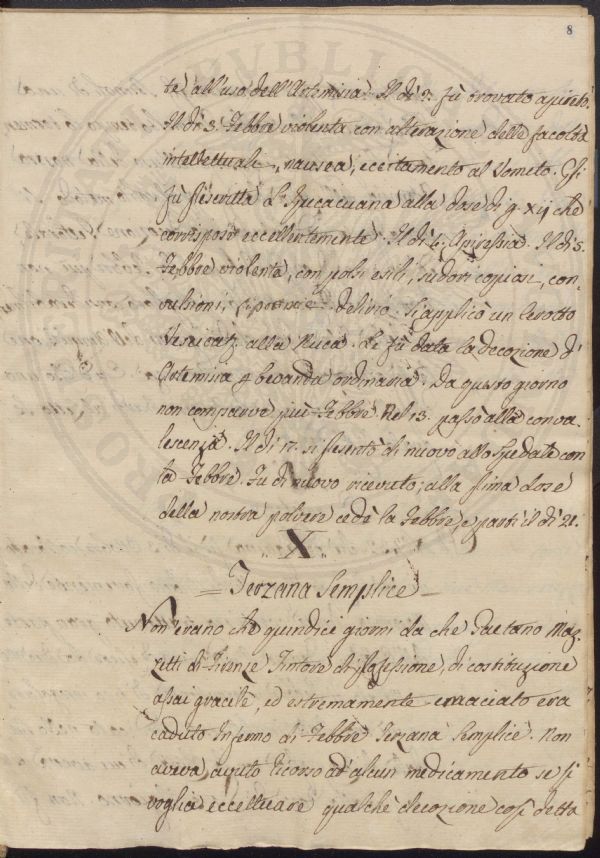 8
te all'uso dell'Artemisia. Il dì 2. fù trovato apireto.
Il dì 3. Febbre violenta con alterazione delle facoltà
intellettuali, nausea, eccitamento al Vomito. Gli
fù prescritta l'Ipecacuana alla dose di g. xij che
corrispose eccellentemente. Il dì 4. Apiressia. Il dì 5.
Febbre violenta, con polsi esili, sudori copiosi, con-
vulsioni, delirio. Si applicò un Cerotto
alla Nuca. Le fù data la decozione d'
Artemisia p bevanda ordinaria. Da questo giorno
non comparve più Febbre. Nel 13. passò alla conva-
lescenza. Il dì 17. si presentò di nuovo allo Spedale con
la Febbre. Fu di nuovo ricevuto; alla prima dose
della nostra polvere cedè la Febbre, e partì il dì 21.
X
= Terzana Semplice =
Non erano che quindici giorni da che Gaetano Maz-
zetti di Firenze Tintore di professione, di costituzione
assai gracile, ed estremamente emaciato era
caduto Infermo di Febbre Terzana Semplice. Non
aveva avuto ricorso ad alcun medicamento se si
voglia eccettuare qualche decozione così detta